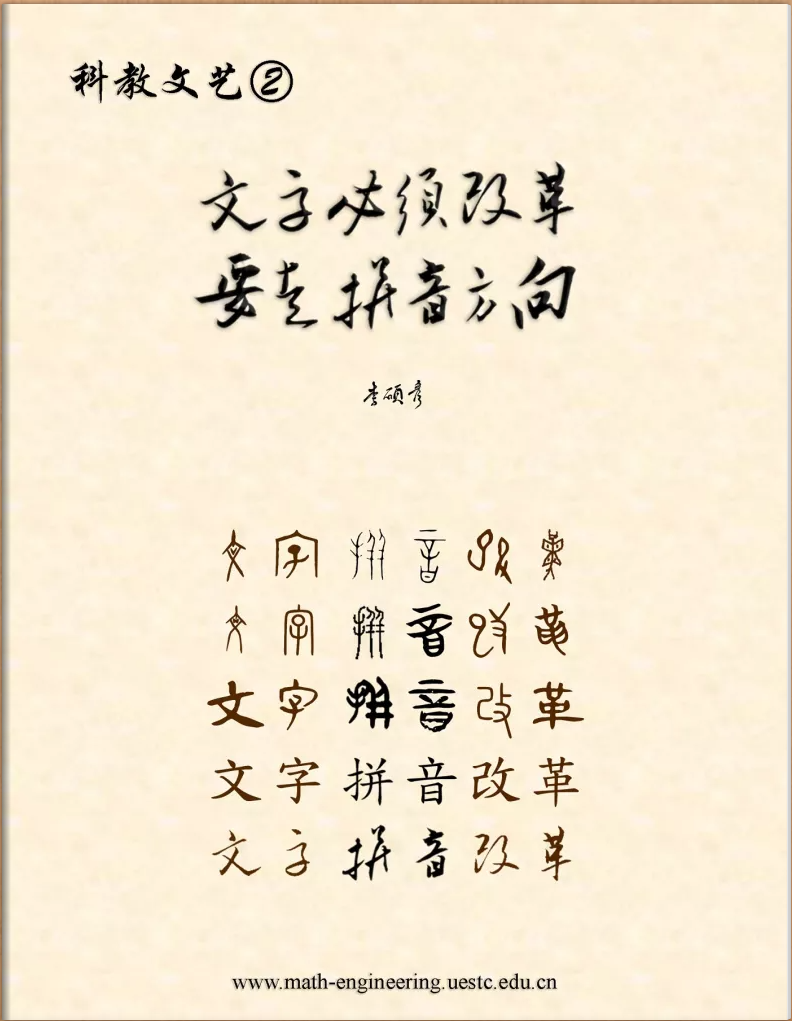 科教文艺②
文字必须改革
要走拼音方向
李硕彦
文字拼音改革
文字拼音改革
文字拼音改革
文字拼音改革
文字拼音改革
www.math-engineering.uestc.edu.cn